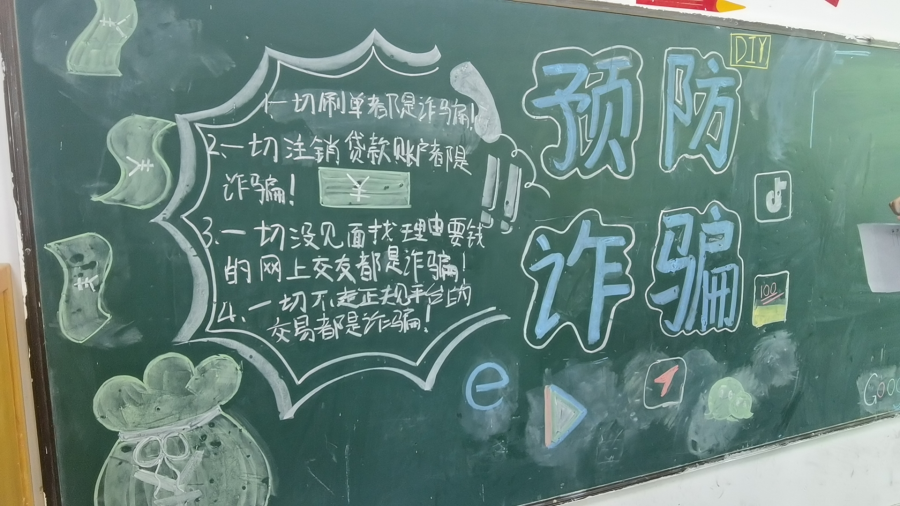 1.一切刷单都是诈骗!
2.一切注销贷款账户都是
诈骗!
3.一切没见面找理由要钱
的网上交友都是诈骗!
4.一切不走正规平台的
交易都是诈骗!
预防
诈骗
DIY
100
e
Goo